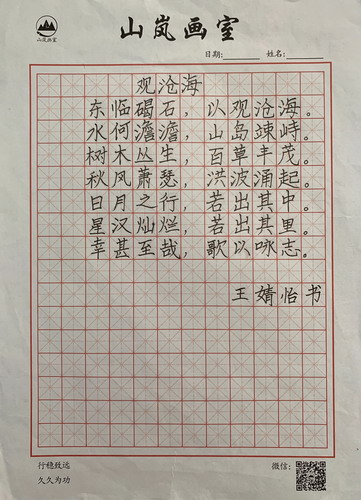 山岚画室
山岚画室
日期: 姓名:
观沧海
东临碣石，以观沧海。
水何澹澹，山岛竦峙。
树木丛生，百草丰茂。
秋风萧瑟，洪波涌起。
日月之行，若出其中。
星汉灿烂，若出其里。
幸甚至哉，歌以咏志。
王婧怡书
行稳致远 微信:
久久为功